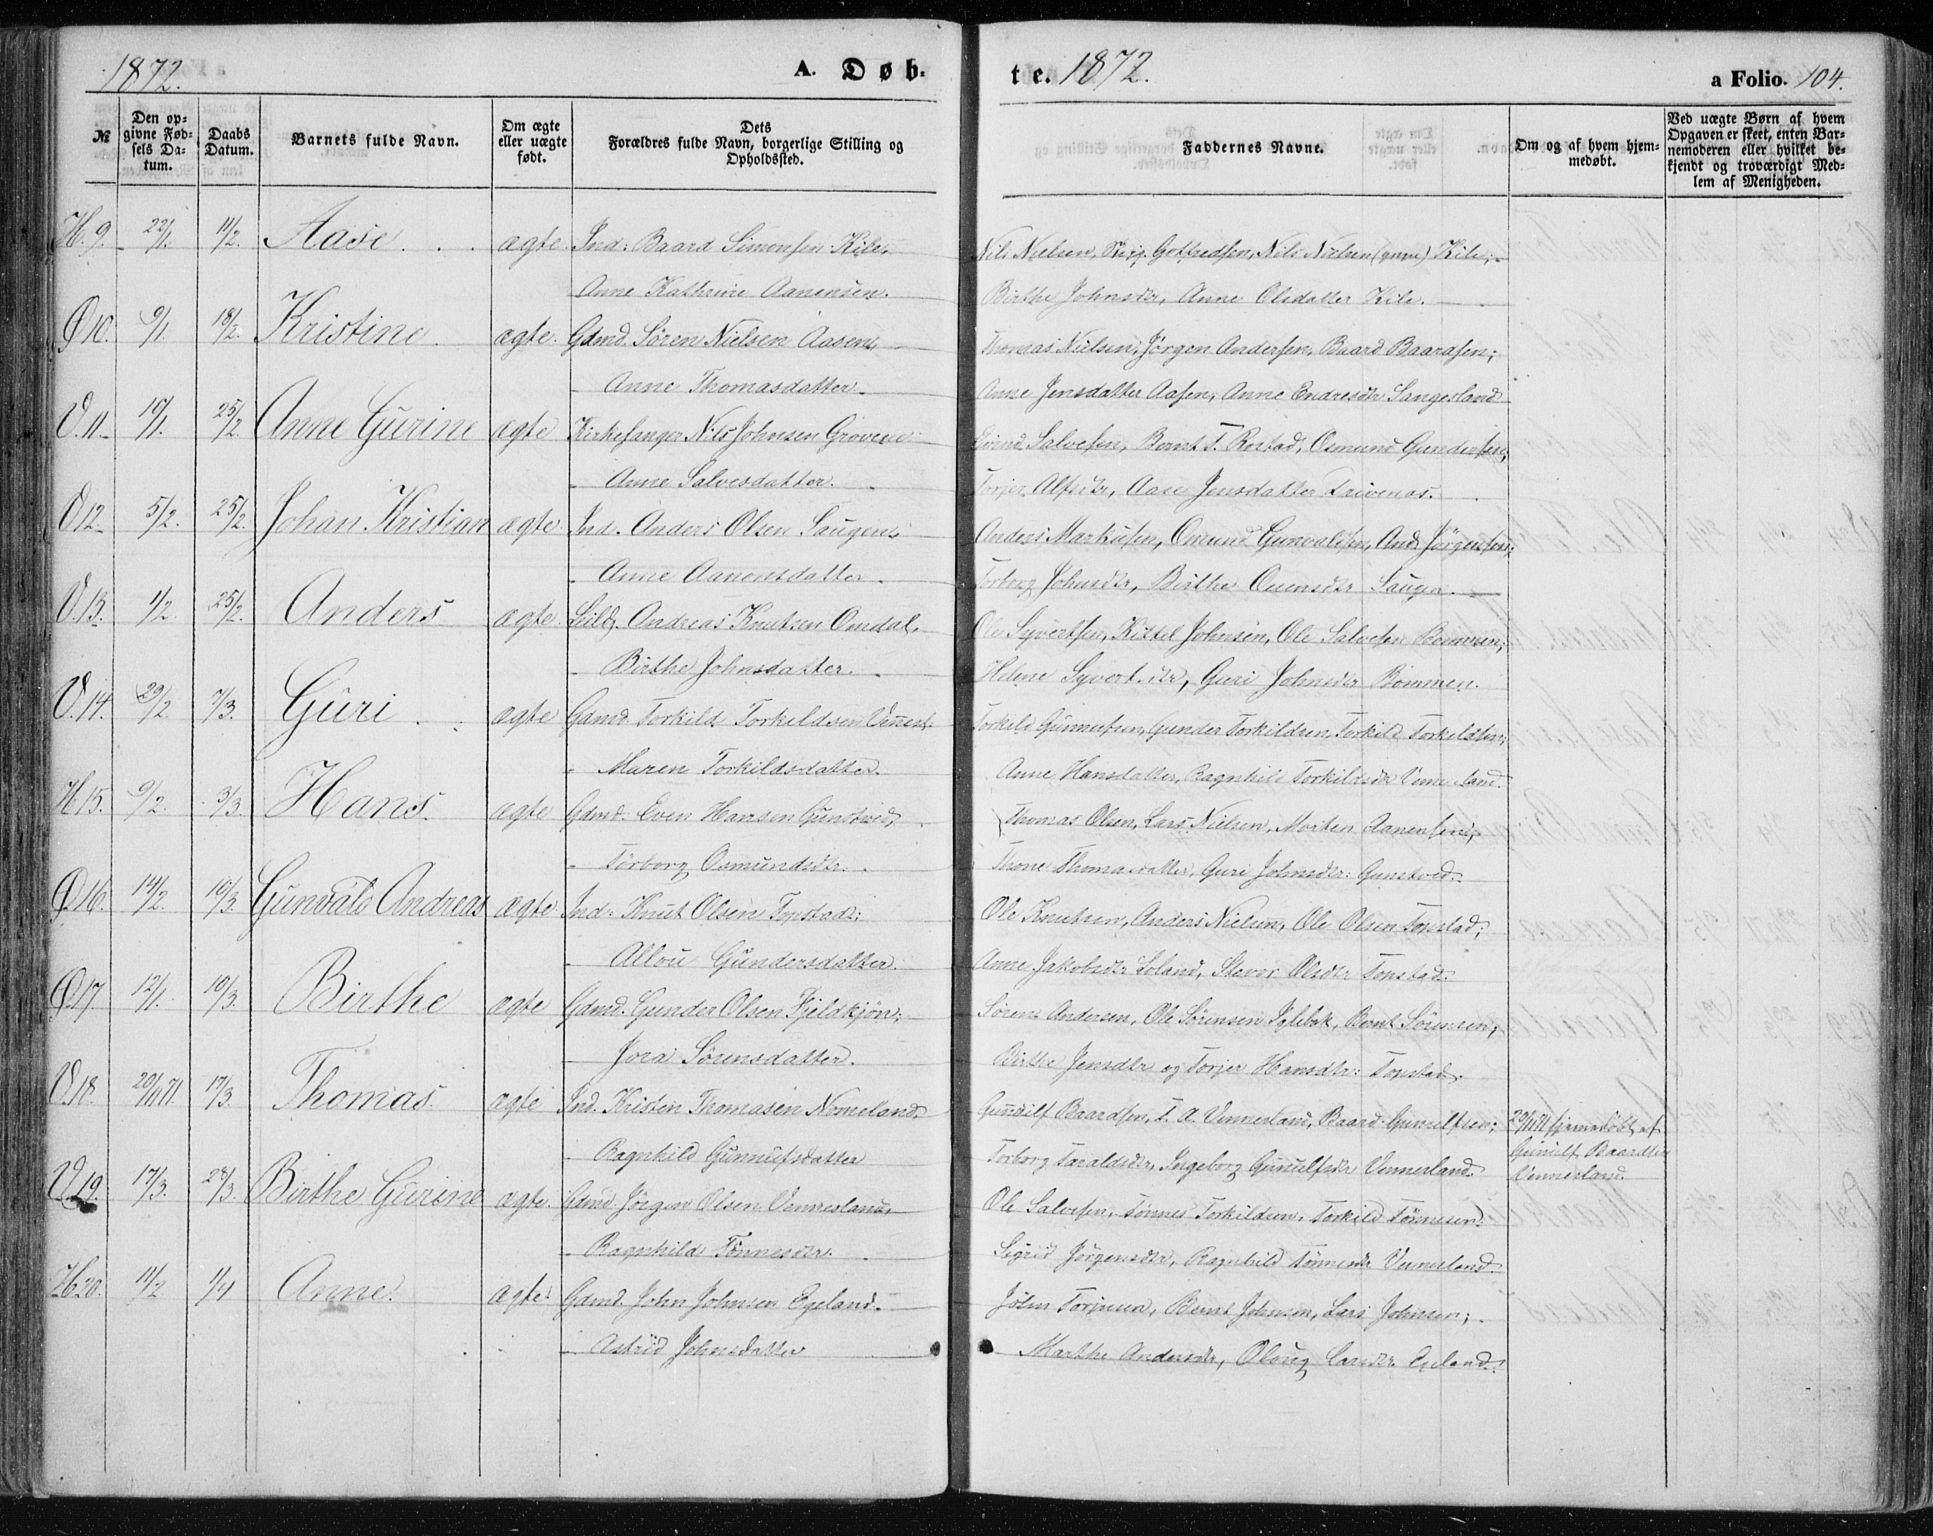 1872. A. Døb-
te. 1872. a Folio. 104.
№ Den opgivne Fødsels Datum. Daabs Datum. Barnets fulde Navn. Om ægte eller uægte født. Dets Forældres fulde Navn, borgerlige Stilling og Opholdssted.
Faddernes Navne. Om og af hvem hjemmedøbt. Ved uægte Børn af hvem Opgaven er skeet, enten Barnemoderen eller hvilket bekjendt og troværdigt Medlem af Menigheden.
H. 9. 22/1. 11/2. Aase. ægte. Ind. Baard Simonsen Kile,
Anne Kathrine Aanensen.
Nils Nielsen, Gottfredsen, Nils Nielsen (yngre) Kile;
Birthe Johnsdtr, Anne Olsdatter Kile.
Ø 10. 9/1. 18/2. Kristine. ægte. Gdmd. Søren Nielsen Aasen,
Anne Thomasdatter.
Thomas Nielsen, Jørgen Andersen, Baard Baardsen;
Anne Jensdatter Aasen, Anne Endresdtr Langesland
V. 11. 10/1. 25/2. Anne Gurine ægte Kirkesanger Nils Johnsen Grovene
Anne Salvesdatter.
Eivind Salvesen, Bernt T. Rostad, Osmund Gundersen,
Torjer Alfsdtr, Aase Jensdatter Drivenes.
V. 12. 5/2. 25/2. Johan Kristian ægte. Ind. Anders Olsen Saugen,
Anne Aanensdatter.
Anders Markusen, Omund Gunvaldsen, And. Jørgensen;
Torborg Johnsdtr, Birthe Ouensdtr Saugen.
V. 13. 1/2. 25/2. Anders ægte. Leild. Andreas Knutsen Omdal,
Birthe Johnsdatter.
Ole Syvertsen, Kittel Johnsen, Ole Salvesen Bommen,
Helene Syvertsdtr, Guri Johnsdtr Bommen.
V. 14. 29/2. 7/3. Guri ægte Gdmd. Torkild Torkildsen Vennesl.
Maren Torkildsdatter.
Torkild Gunnufsen, Gunder Torkildsen, Torkild Torkeldsen;
Anne Hansdatter, Ragnhild Torkildsdtr Vennesland.
H 15. 9/2. 3/3. Hans. ægte Gdmd. Even Hansen Gunstved,
Torborg Osmundsdtr.
Thomas Olsen, Lars Nielsen, Morten Aanensen,
Thone Thomasdatter, Guri Johnsdtr: Gunstved.
Ø 16. 14/2. 10/3. Gunvald Andreas ægte Ind. Knut Olsen Topstad;
Allou Gundersdatter.
Ole Knutsen, Anders Nielsen, Ole Olsen Topstad;
Anne Jakobsdtr Loland, Olsdtr Topstad.
Ø 17. 12/1. 10/3. Birthe ægte Gdmd. Gunder Olsen Fjeldkjøn;
Jora Sørensdatter.
Søren Andersen, Ole Sørensen Iglebæk, Bernt Sørensen,
Birthe Jensdtr og Torjer Hansdtr: Topstad.
V. 18. 20/11 71. 17/3. Thomas. ægte Ind. Kristen Thomasen Nomeland.
Ragnhild Gunnufsdatter
Gunuilf Baardsen, T. A. Vennesland, Baard Gunuilfsen;
Torborg Taraldsdtr, Ingeborg Gunuilfsdtr Vennesland.
29/11 71 hjemmedøbt af
Gunuilf Baardsen
Vennesland.
V. 19. 17/3. 28/3. Birthe Gurine ægte. Gdmd Jørgen Olsen Vennesland,
Ragnhild Tønnesdtr.
Ole Salvesen, Tønnes Torkildsen, Torkild Tønnesen.
Sigrid Jørgensdtr, Ragnhild Tønnesdtr Vennesland.
H 20. 11/2 1/4 Anne. ægte. Gdmd. John Johnsen Egeland.
Astrid Johnsdatter
John Torjusen, Bernt Johnsen, Lars Johnsen;
Marthe Andersdtr, Olaug Larsdtr Egeland.